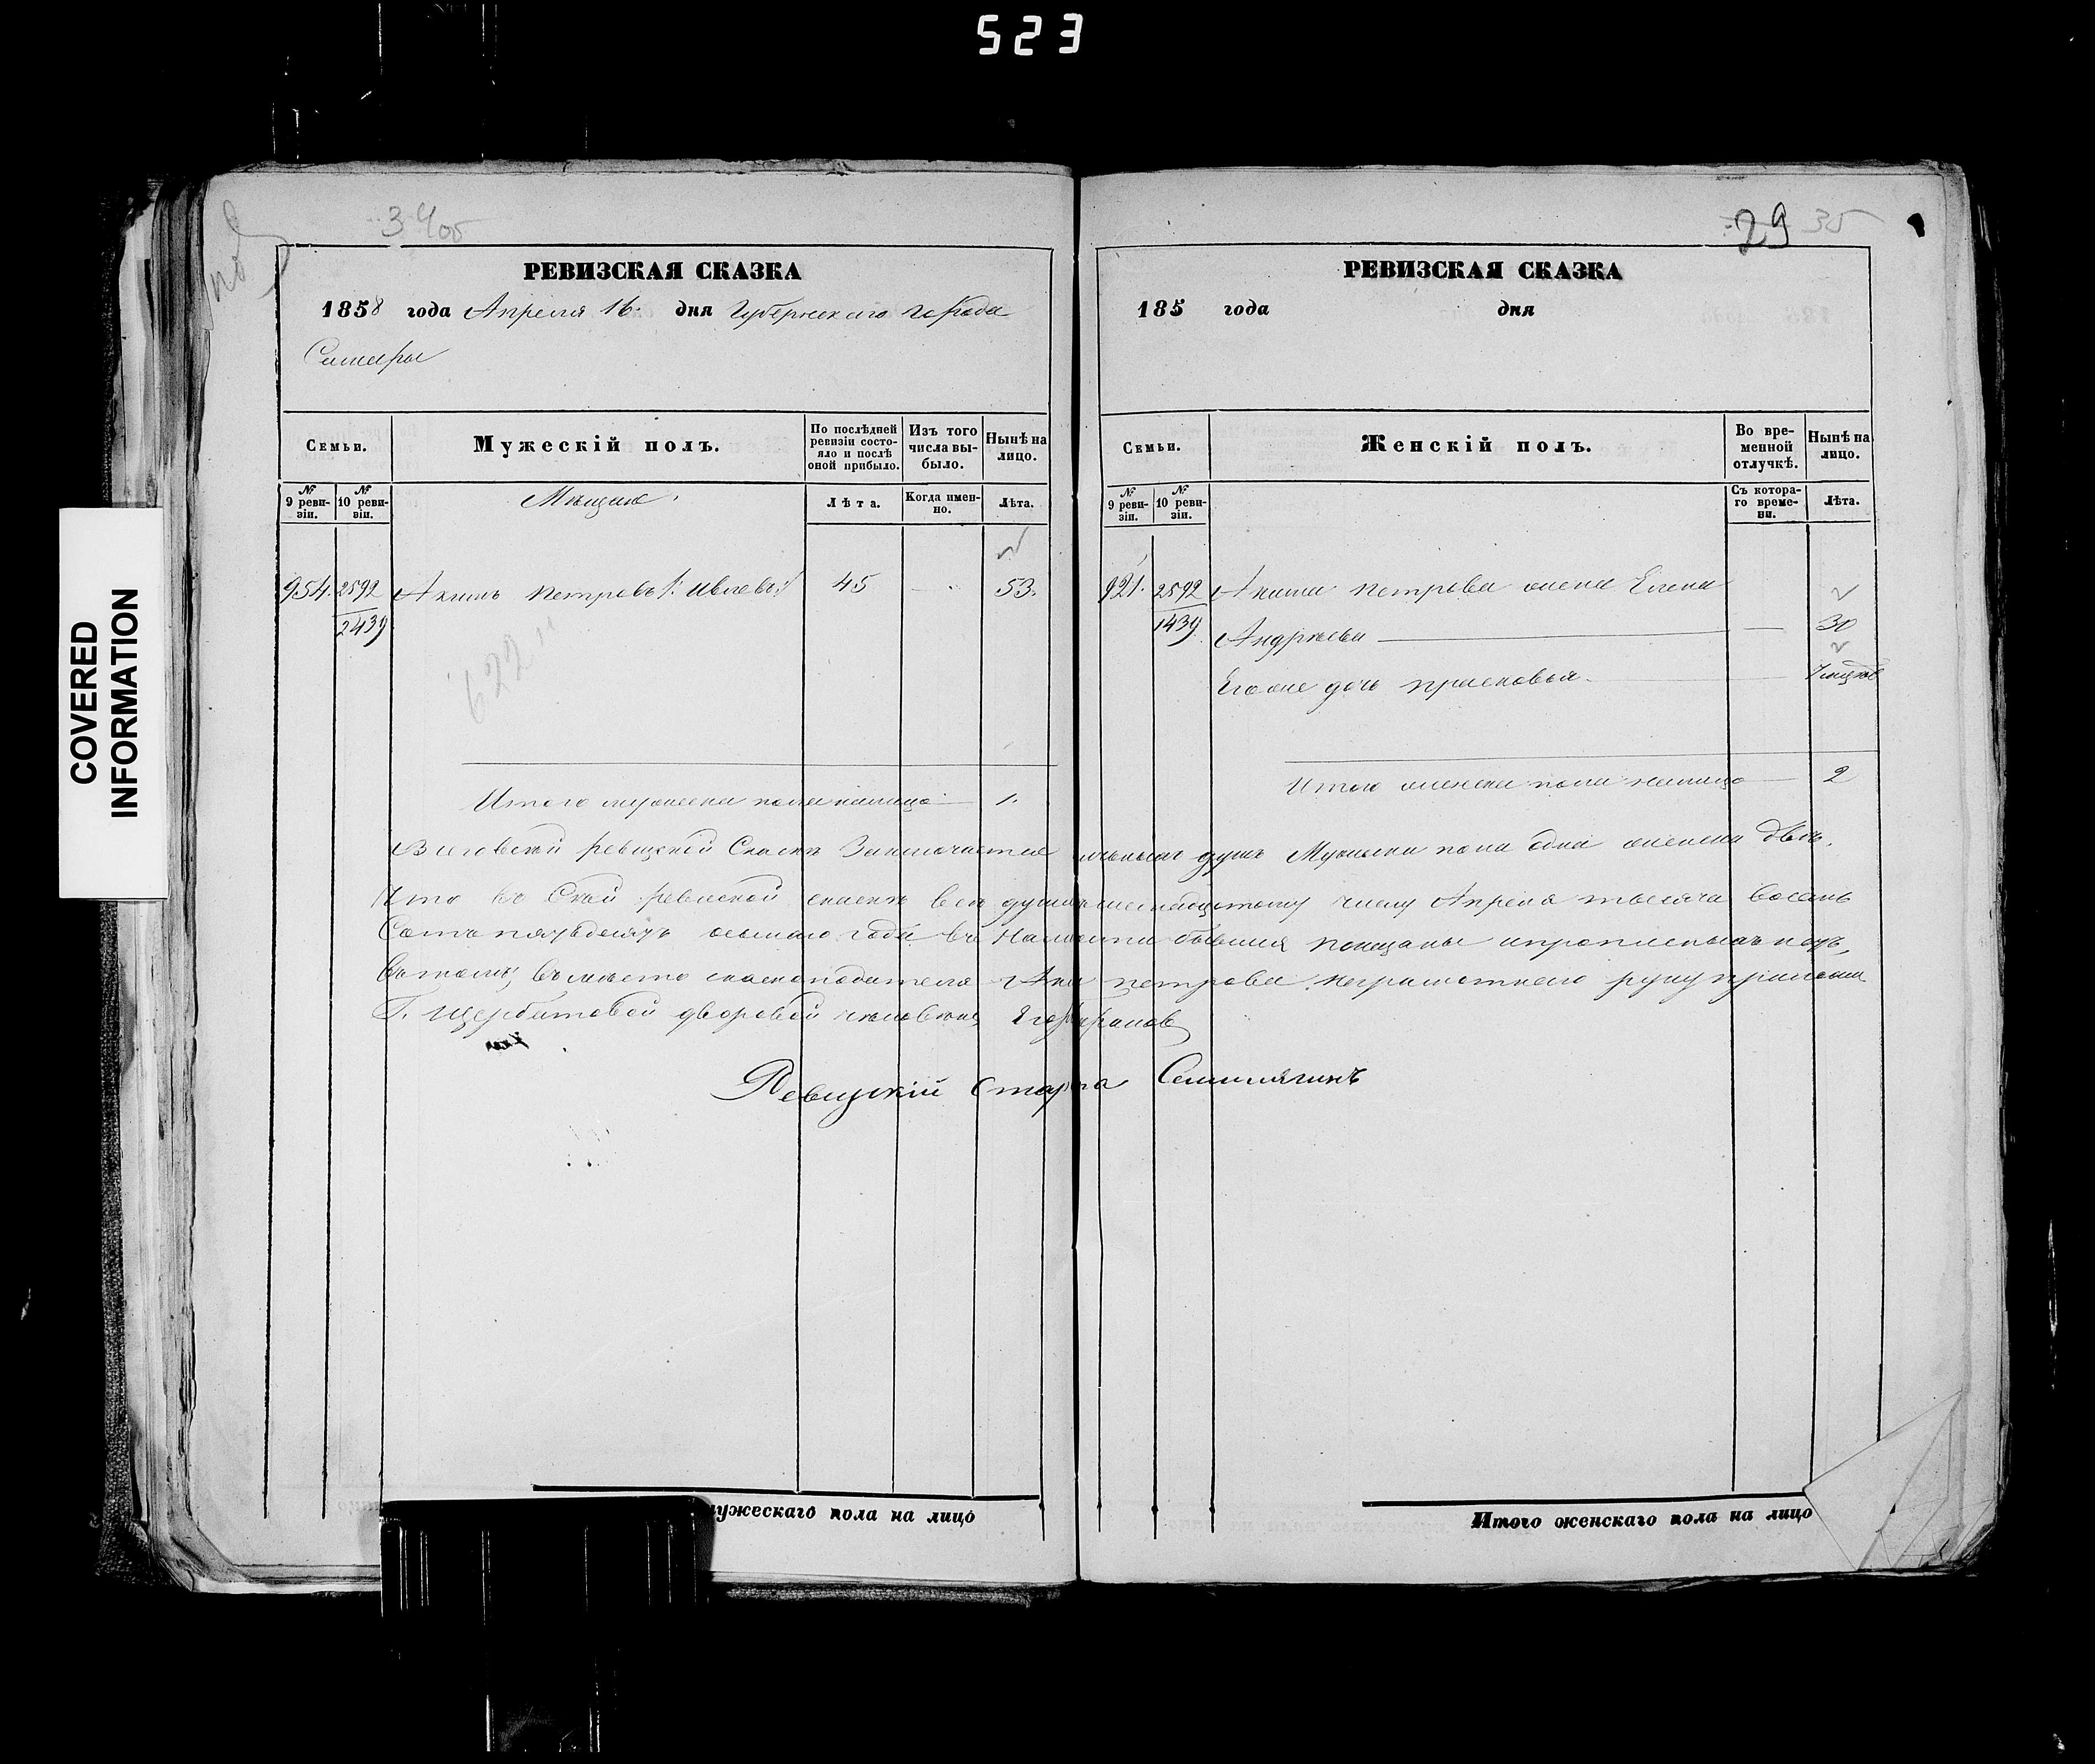 523
COVERED
INFORMATION
29 35
РЕВИЗСКАЯ СКАЗКА
1858 года Апреля 16. дня Губернскаго города
Самары
Семьи.
Мужескій полъ.
По послѣдней ревизіи состояло и послѣ оной прибыло.
Изъ того числа выбыло.
Нынѣ на лицо.
№ 9 ревизіи.
№ 10 ревизіи.
Мѣщане
Лѣта.
Когда именно.
Лѣта.
954. 2592 Акимъ Петровъ 45 — 53.
2439
622
Итого мужеска пола налицо 1.
РЕВИЗСКАЯ СКАЗКА
185 года дня
Семьи.
Женскій полъ.
Во временной отлучкѣ.
Нынѣ на лицо.
№ 9 ревизіи.
№ 10 ревизіи.
Съ котораго времени.
Лѣта.
921. 2592 Акима Петрова жена Елена
1439 Андреева — 30
Его же дочь Прасковья
Итого женска пола налицо — 2
ревиской Сказкѣ Заключается душъ Мужеска пола одна женска двѣ.
Что въ Сей ревиской сказкѣ все души шестнадцатому числу Апреля тысяча восемь
Сотъ пятьдесятъ осьмаго года въ Наличности бывшия показаны и прописныхъ нетъ,
Въ томъ, въ место сказкоподателя Акима Петрова неграмотнаго руку приложил
Г. Щербатовой дворовой человекъ
Ревизкій Староста
мужескаго пола на лицо
Итого женскаго пола на лицо